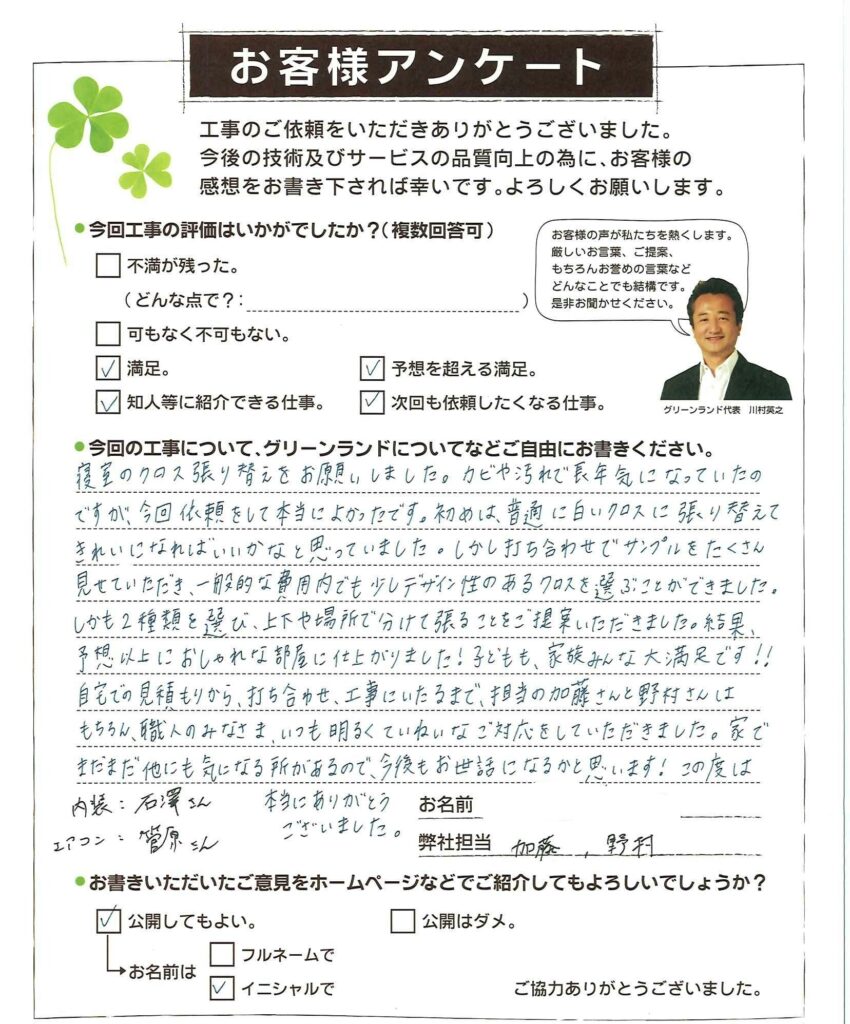 お客様アンケート
工事のご依頼をいただきありがとうございました。
今後の技術及びサービスの品質向上の為に、お客様の
感想をお書き下されば幸いです。よろしくお願いします。
●今回工事の評価はいかがでしたか?(複数回答可)
お客様の声が私たちを熱くします。
厳しいお言葉、ご提案、
もちろんお誉めの言葉など
どんなことでも結構です。
是非お聞かせください。
グリーンランド代表 川村英之
□ 不満が残った。
(どんな点で?: )
□ 可もなく不可もない。
☑ 満足。 ☑ 予想を超える満足。
☑ 知人等に紹介できる仕事。 ☑ 次回も依頼したくなる仕事。
●今回の工事について、グリーンランドについてなどご自由にお書きください。
寝室のクロス張り替えをお願いしました。カビや汚れで長年気になっていたの
ですが、今回依頼をして本当によかったです。初めは、普通に白いクロスに張り替えて
きれいになればいいかなと思っていました。しかし打ち合わせでサンプルをたくさん
見せていただき、一般的な費用内でも少しデザイン性のあるクロスを選ぶことができました。
しかも2種類を選び、上下や場所で分けて張ることをご提案いただきました。結果、
予想以上におしゃれな部屋に仕上がりました!子どもも、家族みんな大満足です!!
自宅での見積もりから、打ち合わせ、工事にいたるまで、担当の加藤さんと野村さんは
もちろん、職人のみなさま、いつも明るくていねいなご対応をしていただきました。家で
まだまだ他にも気になる所があるので、今後もお世話になるかと思います!この度は
本当にありがとう
ございました。
内装:石澤さん
エアコン:菅原さん
お名前
弊社担当 加藤、野村
●お書きいただいたご意見をホームページなどでご紹介してもよろしいでしょうか?
☑ 公開してもよい。 □ 公開はダメ。
→お名前は □ フルネームで
☑ イニシャルで
ご協力ありがとうございました。